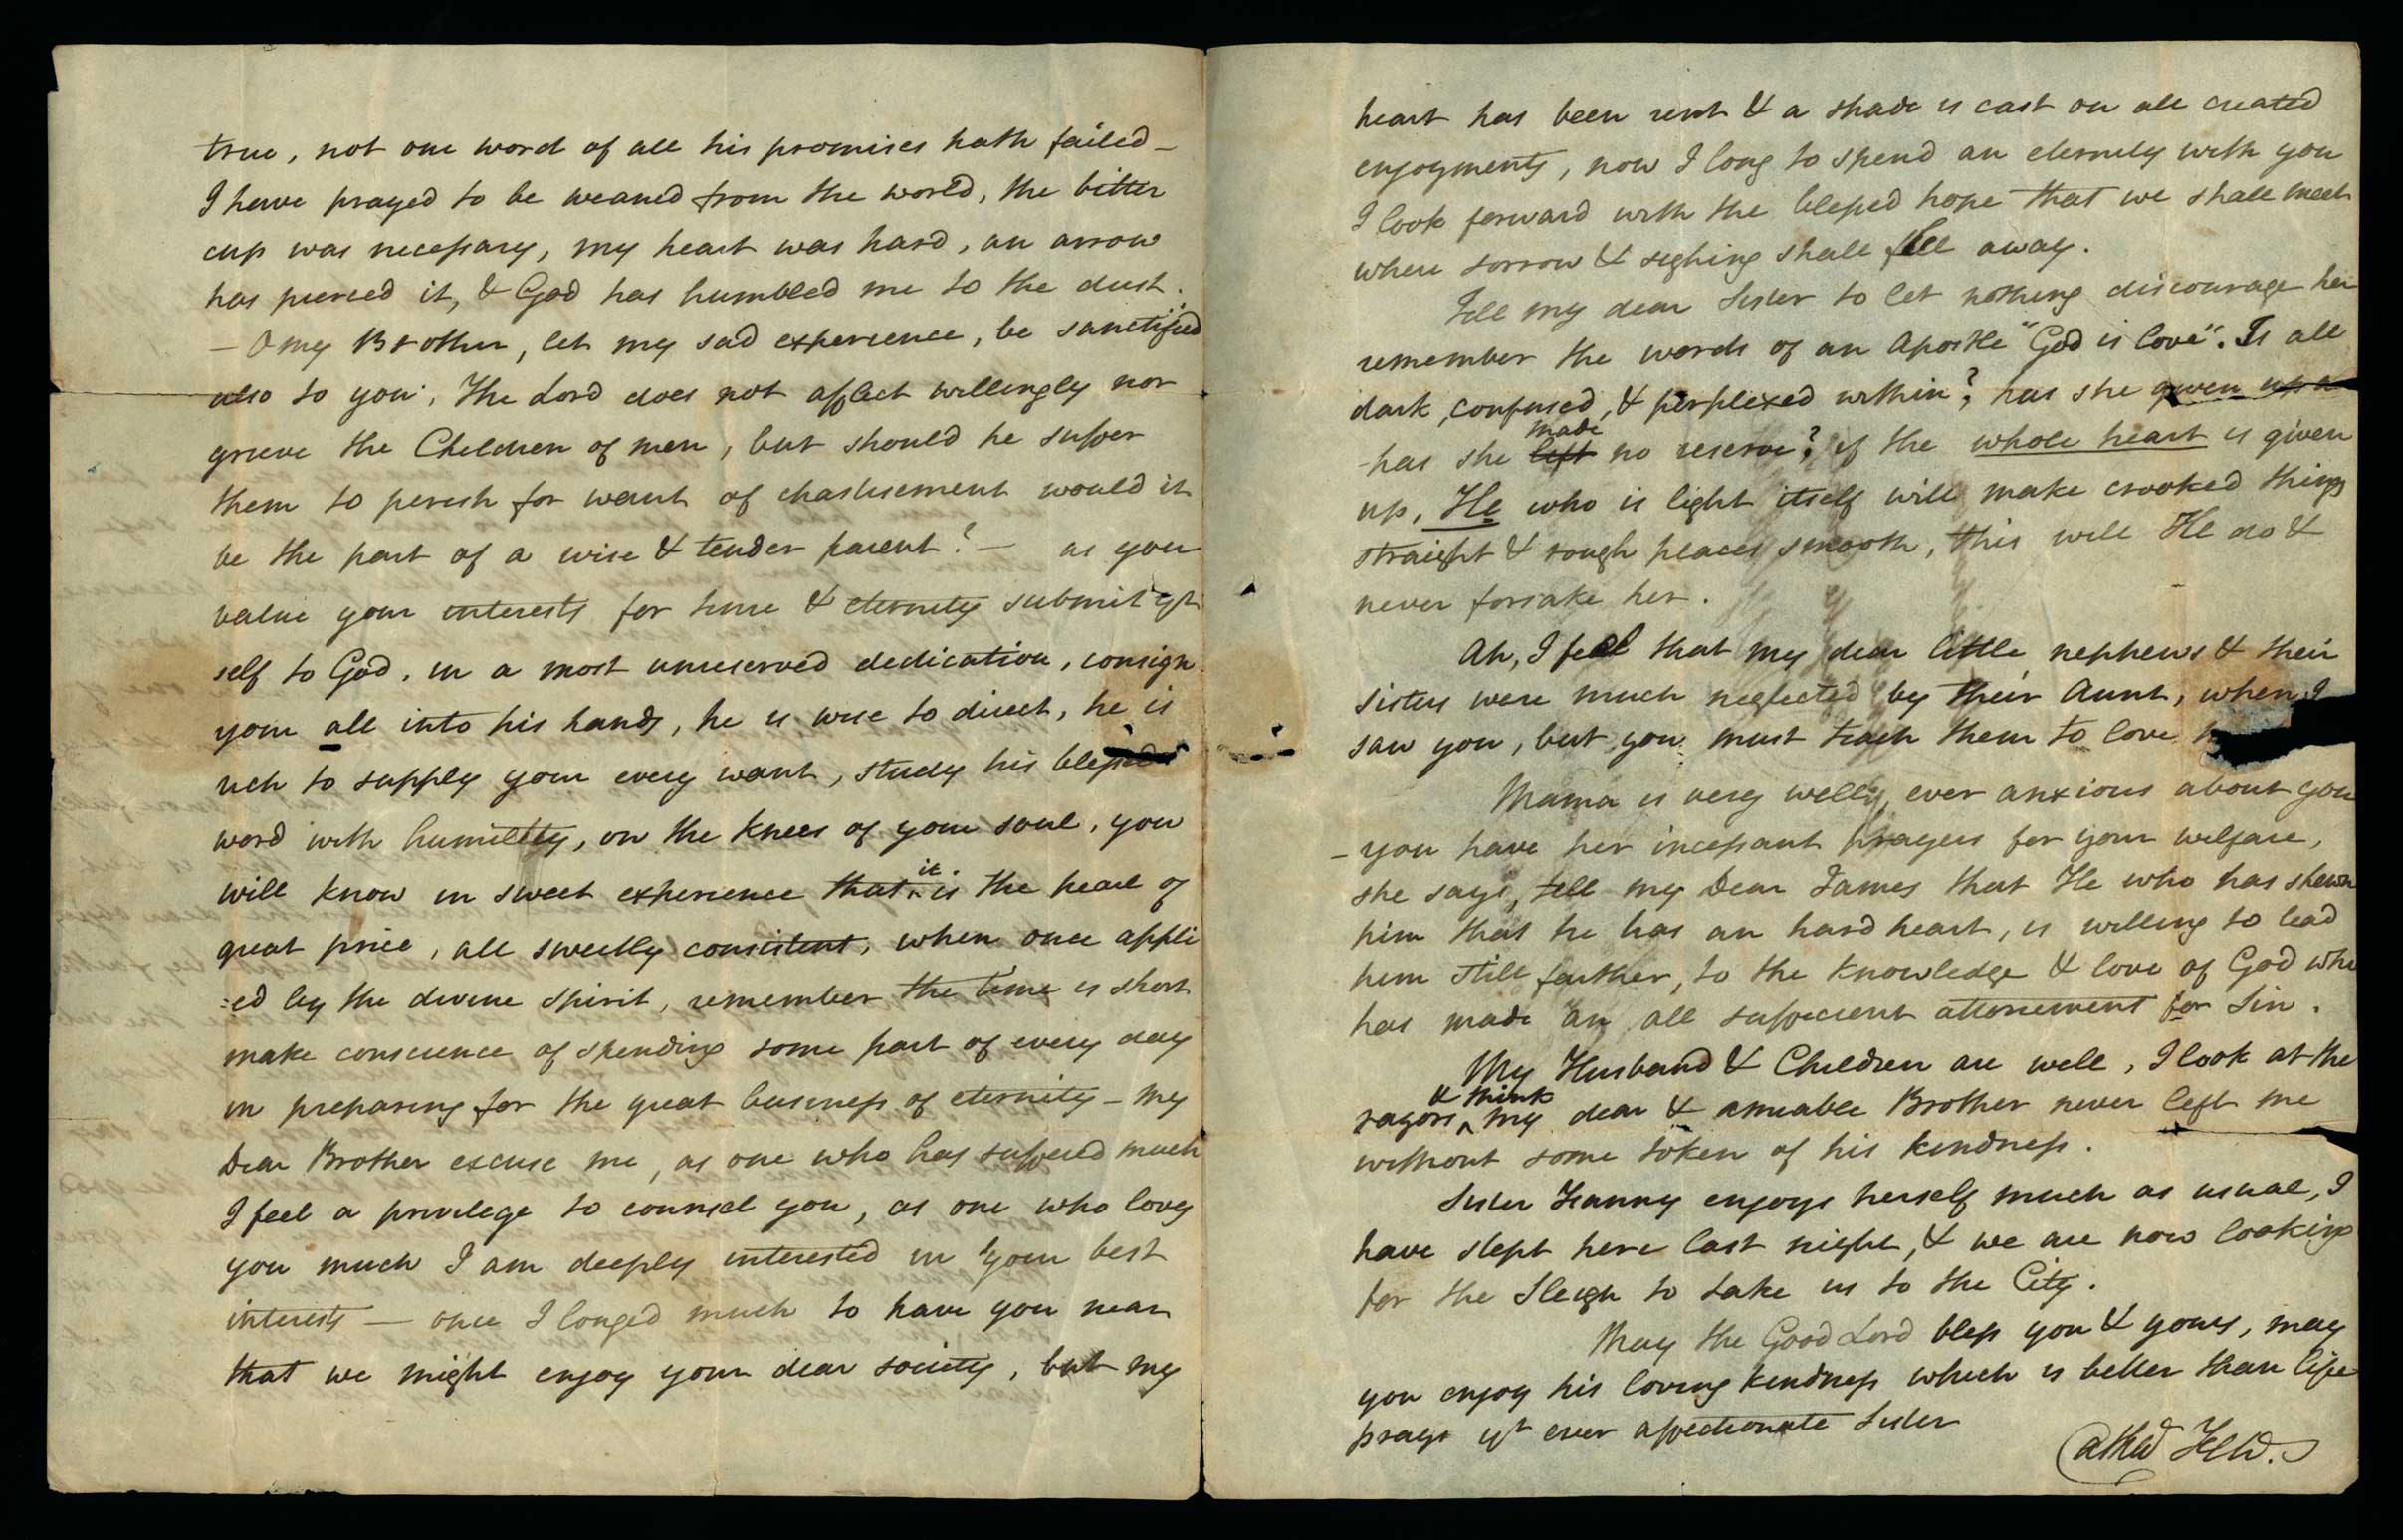 true, not one word of all his promises hath failed –
I have prayed to be weaned from the world, the bitter
cup was necessary, my heart was hard, an arrow
has pierced it, & God has humbled me to the dust.
– O my Brother, let my sad experience, be sanctified
also to you, The Lord does not afflict willingly nor
grieve the Children of men, but should he suffer
them to perish for want of chastisement would it
be the part of a wise & tender parent? – as you
value your interests for time & eternity submit yr
self to God, in a most unreserved dedication, consign
your all into his hands, he is wise to direct, he is
rich to supply your every want, study his blessed
word with humility, on the knees of your soul, you
will know in sweet experience that it is the pearl of
great price, all sweetly consistent, when once appli
=ed by the divine spirit, remember the time is short
make conscience of spending some part of every day
in preparing for the great business of eternity – My
Dear Brother excuse me, as one who has suffered much
I feel a privilege to counsel you, as one who loves
you much I am deeply interested in your best
interests – once I longed much to have you near
that we might enjoy your dear society, but my
heart has been rent & a shade is cast on all created
enjoyments, now I long to spend an eternity with you
I look forward with the blessed hope that we shall meet
where sorrow & sighing shall flee away.
Tell my dear Sister to let nothing discourage her
remember the words of an Apostle "God is love". Is all
dark, confused, & perplexed within? has she given up a
has she left made no reserve? if the whole heart is given
up, He who is light itself will make crooked things
straight & rough places smooth, this will He do &
never forsake her.
Ah, I feel that my dear little nephews & their
sisters were much neglected by their Aunt, when I
saw you, but you must teach them to love
Mama is very well, ever anxious about you
– you have her incessant prayers for your welfare,
she says, tell my Dear James that He who has shewn
him that he has an hard heart, is willing to lead
him still farther, to the knowledge & love of God who
has made an all sufficient attonement for Sin.
My Husband & Children are well, I look at the
razors & think my dear & amiable Brother never left me
without some token of his kindness.
Sister Fanny enjoys herself much as usual, I
have slept here last night, & we are now looking
for the Sleigh to take us to the City.
May the Good Lord bless you & yours, may
you enjoy his loving kindness which is better than life
prays yr ever affectionate Sister